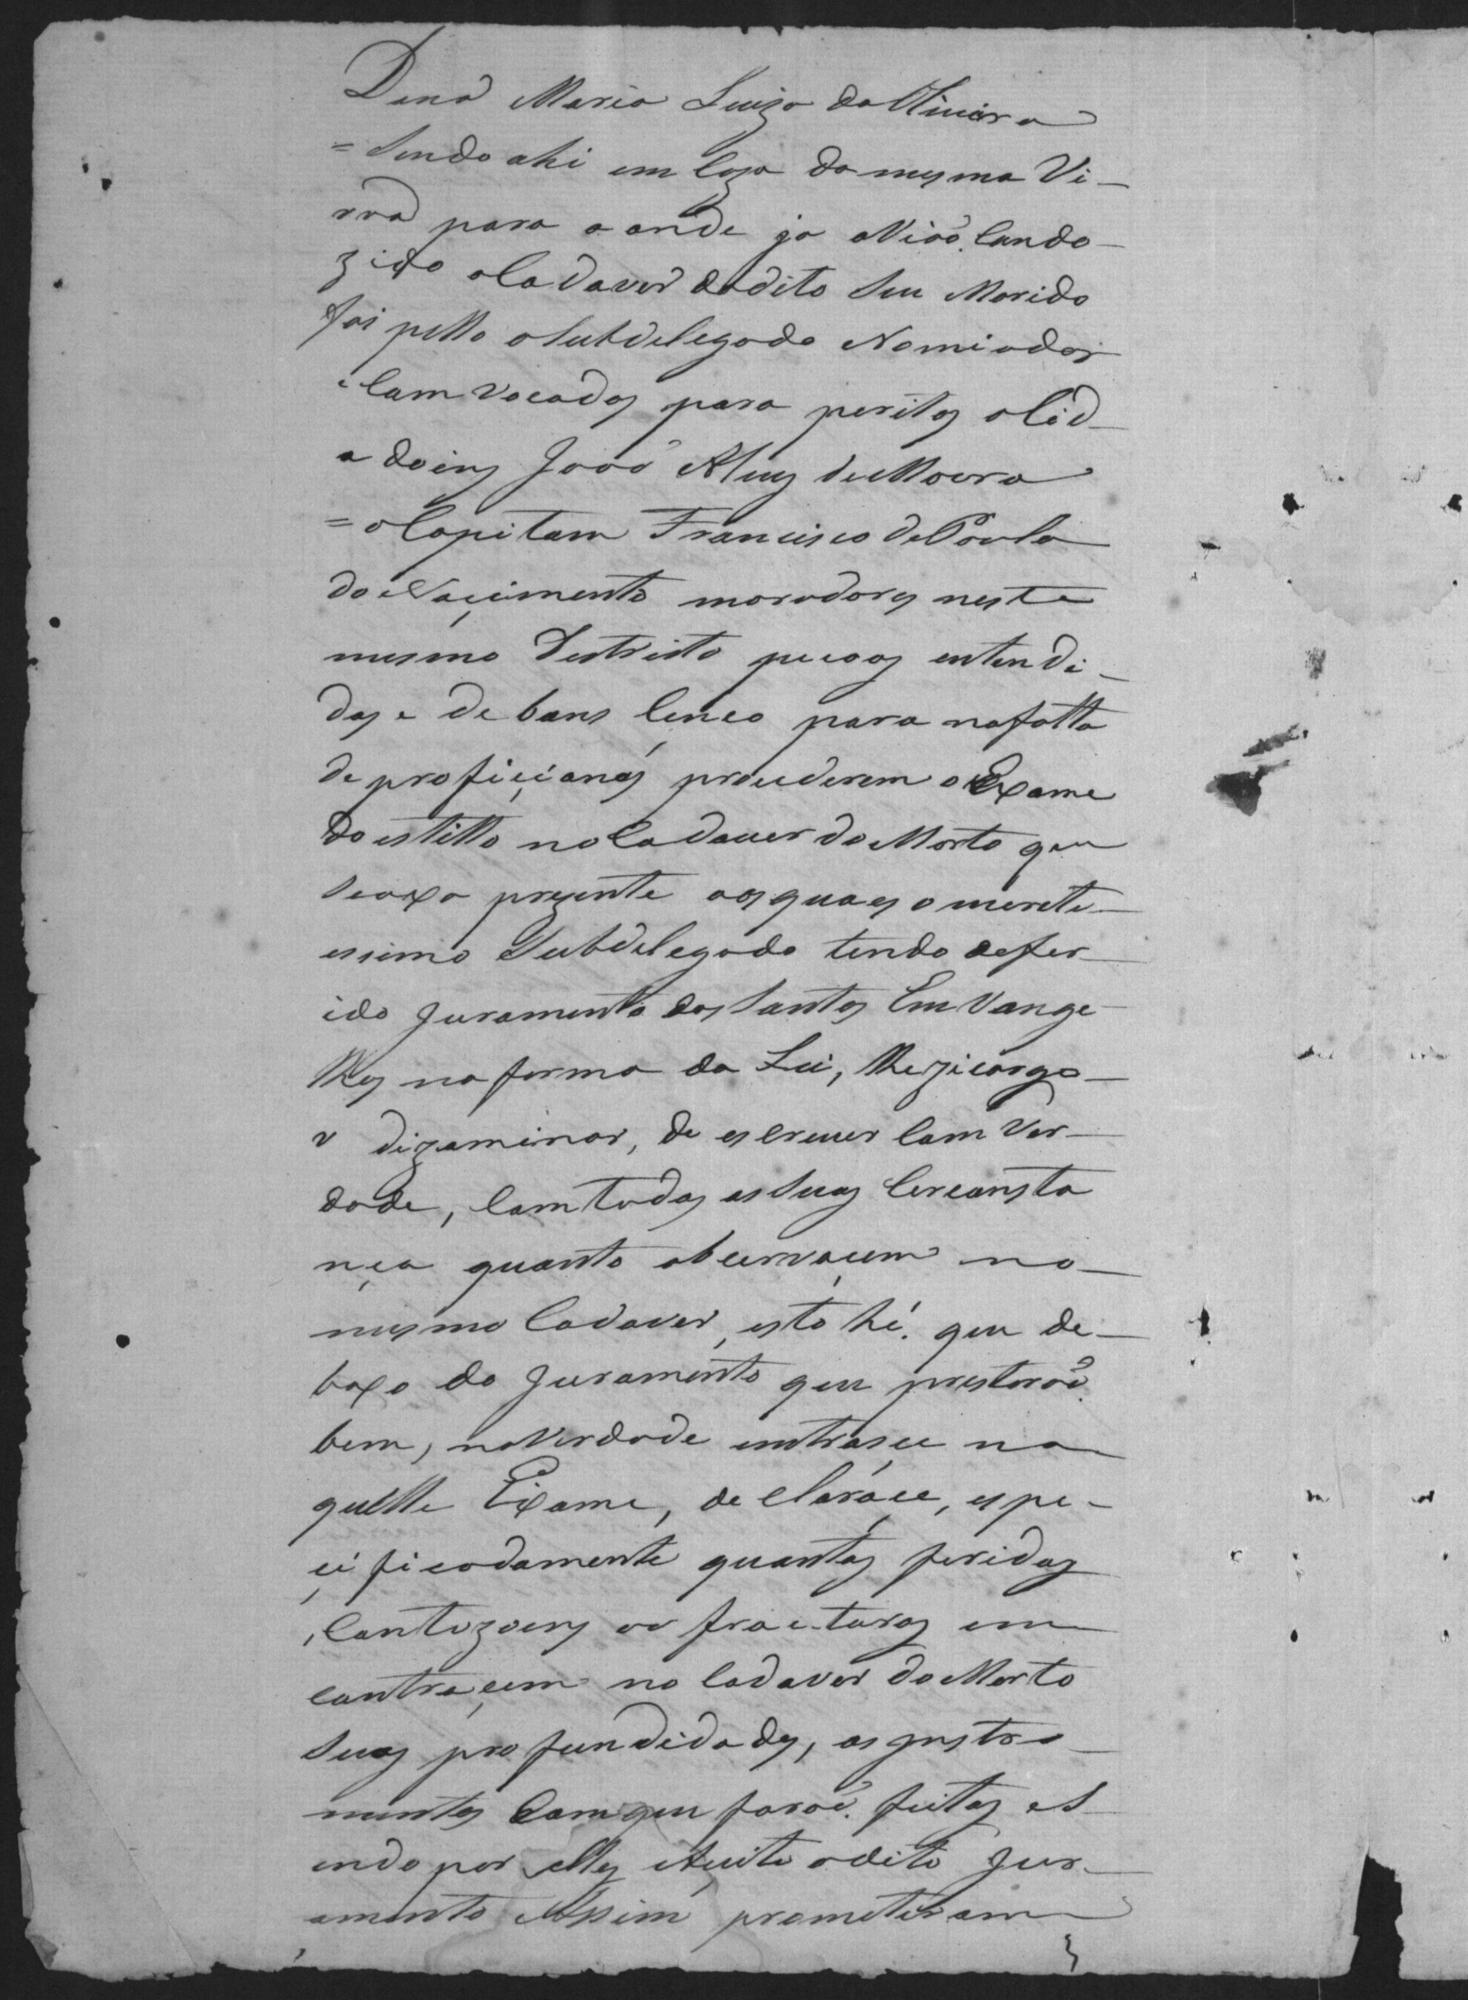 Dona Maria Luiza da Oliveira
= Sendo ahi em Caza da mesma Vi-
uva para a onde ja aviaõ Condo-
zido o Cadaver do dito Seu Marido
foi pello o Subdelegado Nomiados
e Comvocados para peritos o Cid-
adoins Joaõ Alves de Moura
= o Capitam Francisco de Paula
do Nacimento moradores neste
mesmo Destricto peçoas entendi-
das e de bons Cenço para na falta
de proficionaes procederem o Exame
do estillo no Cadaver do Morto que
Seaxa prezente aos quaes o merete-
issimo Subdelegado tendo defer-
ido Juramento dos Santos Emvange-
lhos na forma da Lei, lhes
dizaminar, de escrever Com Ver-
dade, Com todas as Suas Cercunsta
nça quanto observaçem no
mesmo Cadaver, esto hé. que de-
baxo do Juramento que prestaraõ
bem, na Verdade entrasce na
quelle Exame, de claráce, espe-
cificadamente quantas feridas
, Contuzoens ou fracturas em
contraçem no Cadaver do Morto
Suas profundidades, os Jnstro-
mentos Com que foraõ. feitas e S
endo por elles açeito o dito Jur-
amento Assim prometeram